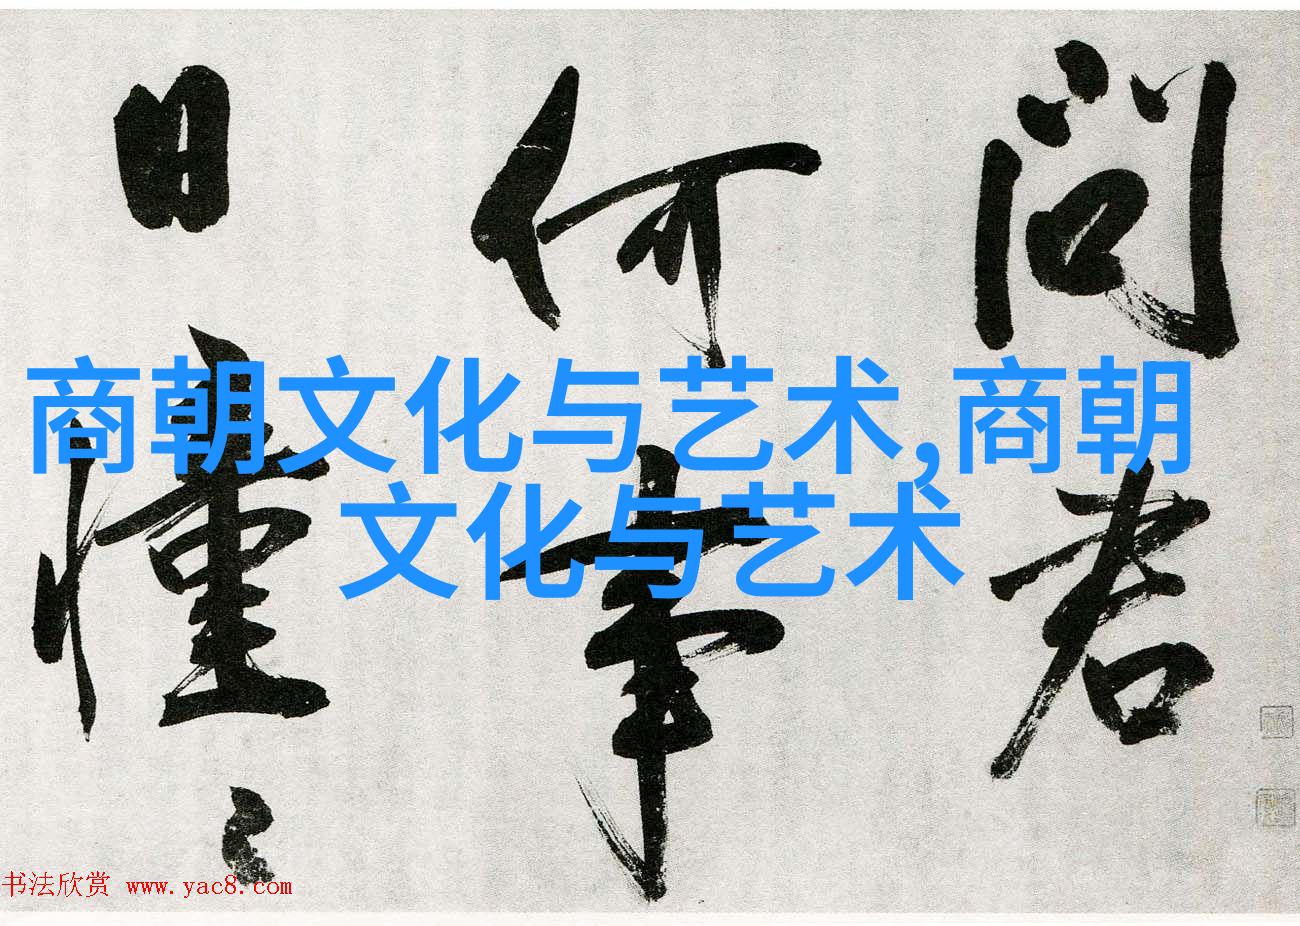 问君
何事
日憧〻
商朝文化与艺术,商朝
文化与艺术
书法欣赏 www.yac8.com